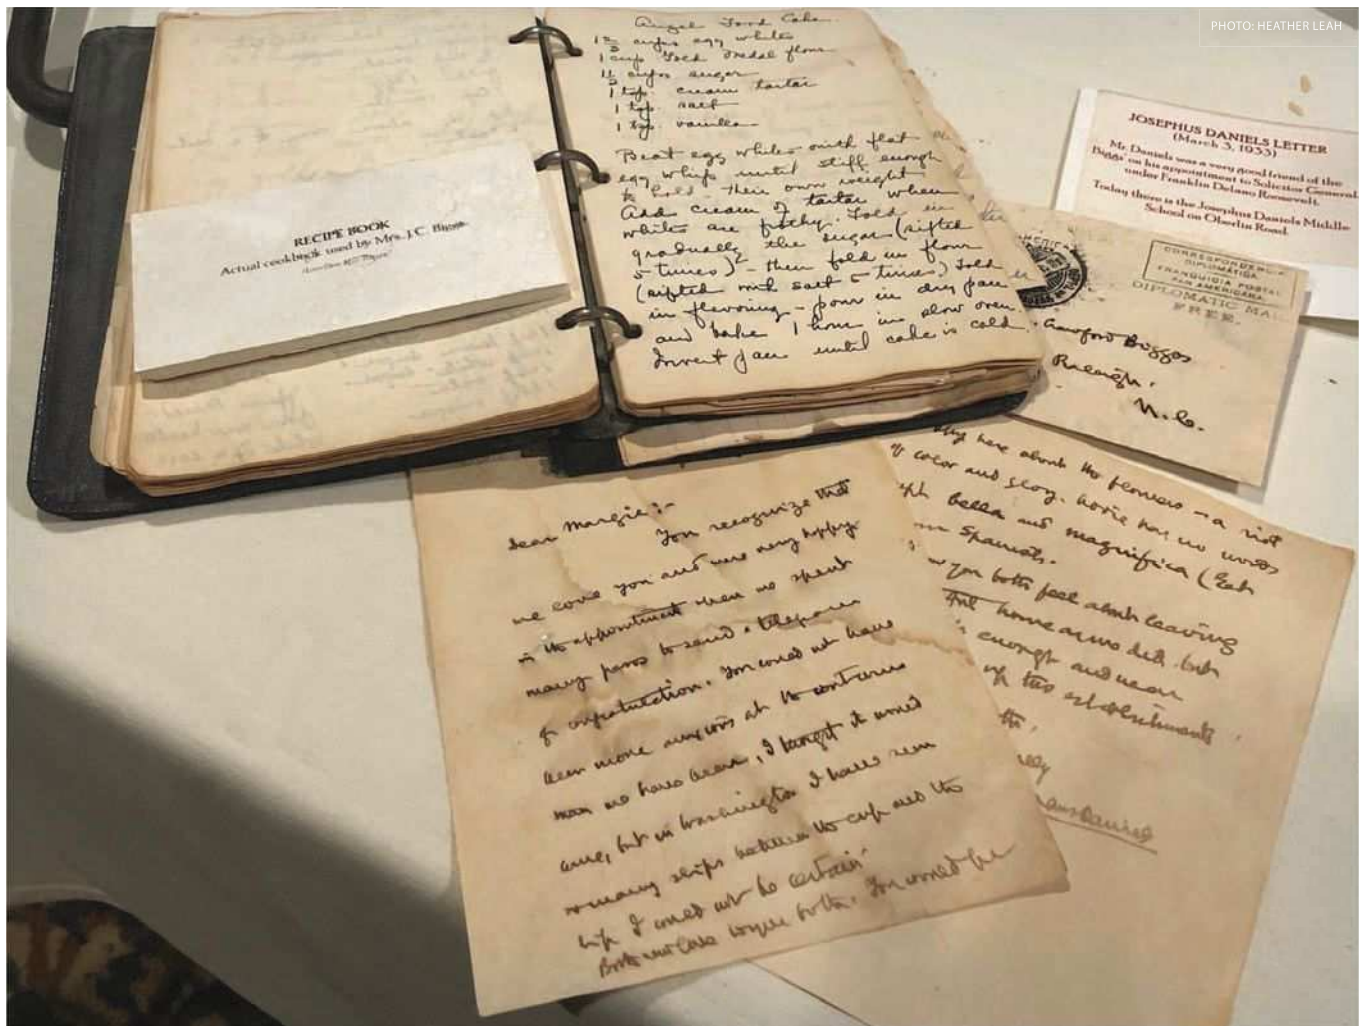 PHOTO: HEATHER LEAH
Angel Food Cake
1 1/2 cups egg whites
1 cup Gold Medal flour
1 1/2 cups sugar
1 tsp. cream tartar
1 tsp. salt
1 tsp. vanilla
Beat egg whites with flat
egg whip until stiff enough
to hold their own weight
Add cream of tartar when
whites are frothy. Fold in
gradually the sugar (sifted
5 times) - then fold in flour
(sifted with salt 5 times) Fold
in flavoring - pour in dry pan
and bake 1 hour in slow oven.
Invert pan until cake is cold.
RECIPE BOOK
Actual cookbook used by Mrs. J.C. Biggs
JOSEPHUS DANIELS LETTER
(March 3, 1933)
Mr. Daniels was a very good friend of the
Biggs' on his appointment to Solicitor General
under Franklin Delano Roosevelt.
Today there is the Josephus Daniels Middle
School on Oberlin Road.
CORRESPONDENCIA
DIPLOMÁTICA
FRANQUICIA POSTAL
PAN AMERICANA
DIPLOMATIC MAIL
FREE.
Crawford Biggs
Raleigh,
N.C.
Dear Margie:-
You recognize that
we love you and were very happy
in the appointment when we spent
many pesos to send a telegram
of congratulation. You could not have
been more anxious
man we have been, I thought it would
come, but in Washington I have seen
so many slips between the cup and the
lip I could not be certain
Both
here about the flowers - a riot
of color and glory. has no words
bella and magnifica (
in Spanish.
you both feel about leaving
home as we did, but
enough and near
up two establishments
Daniels